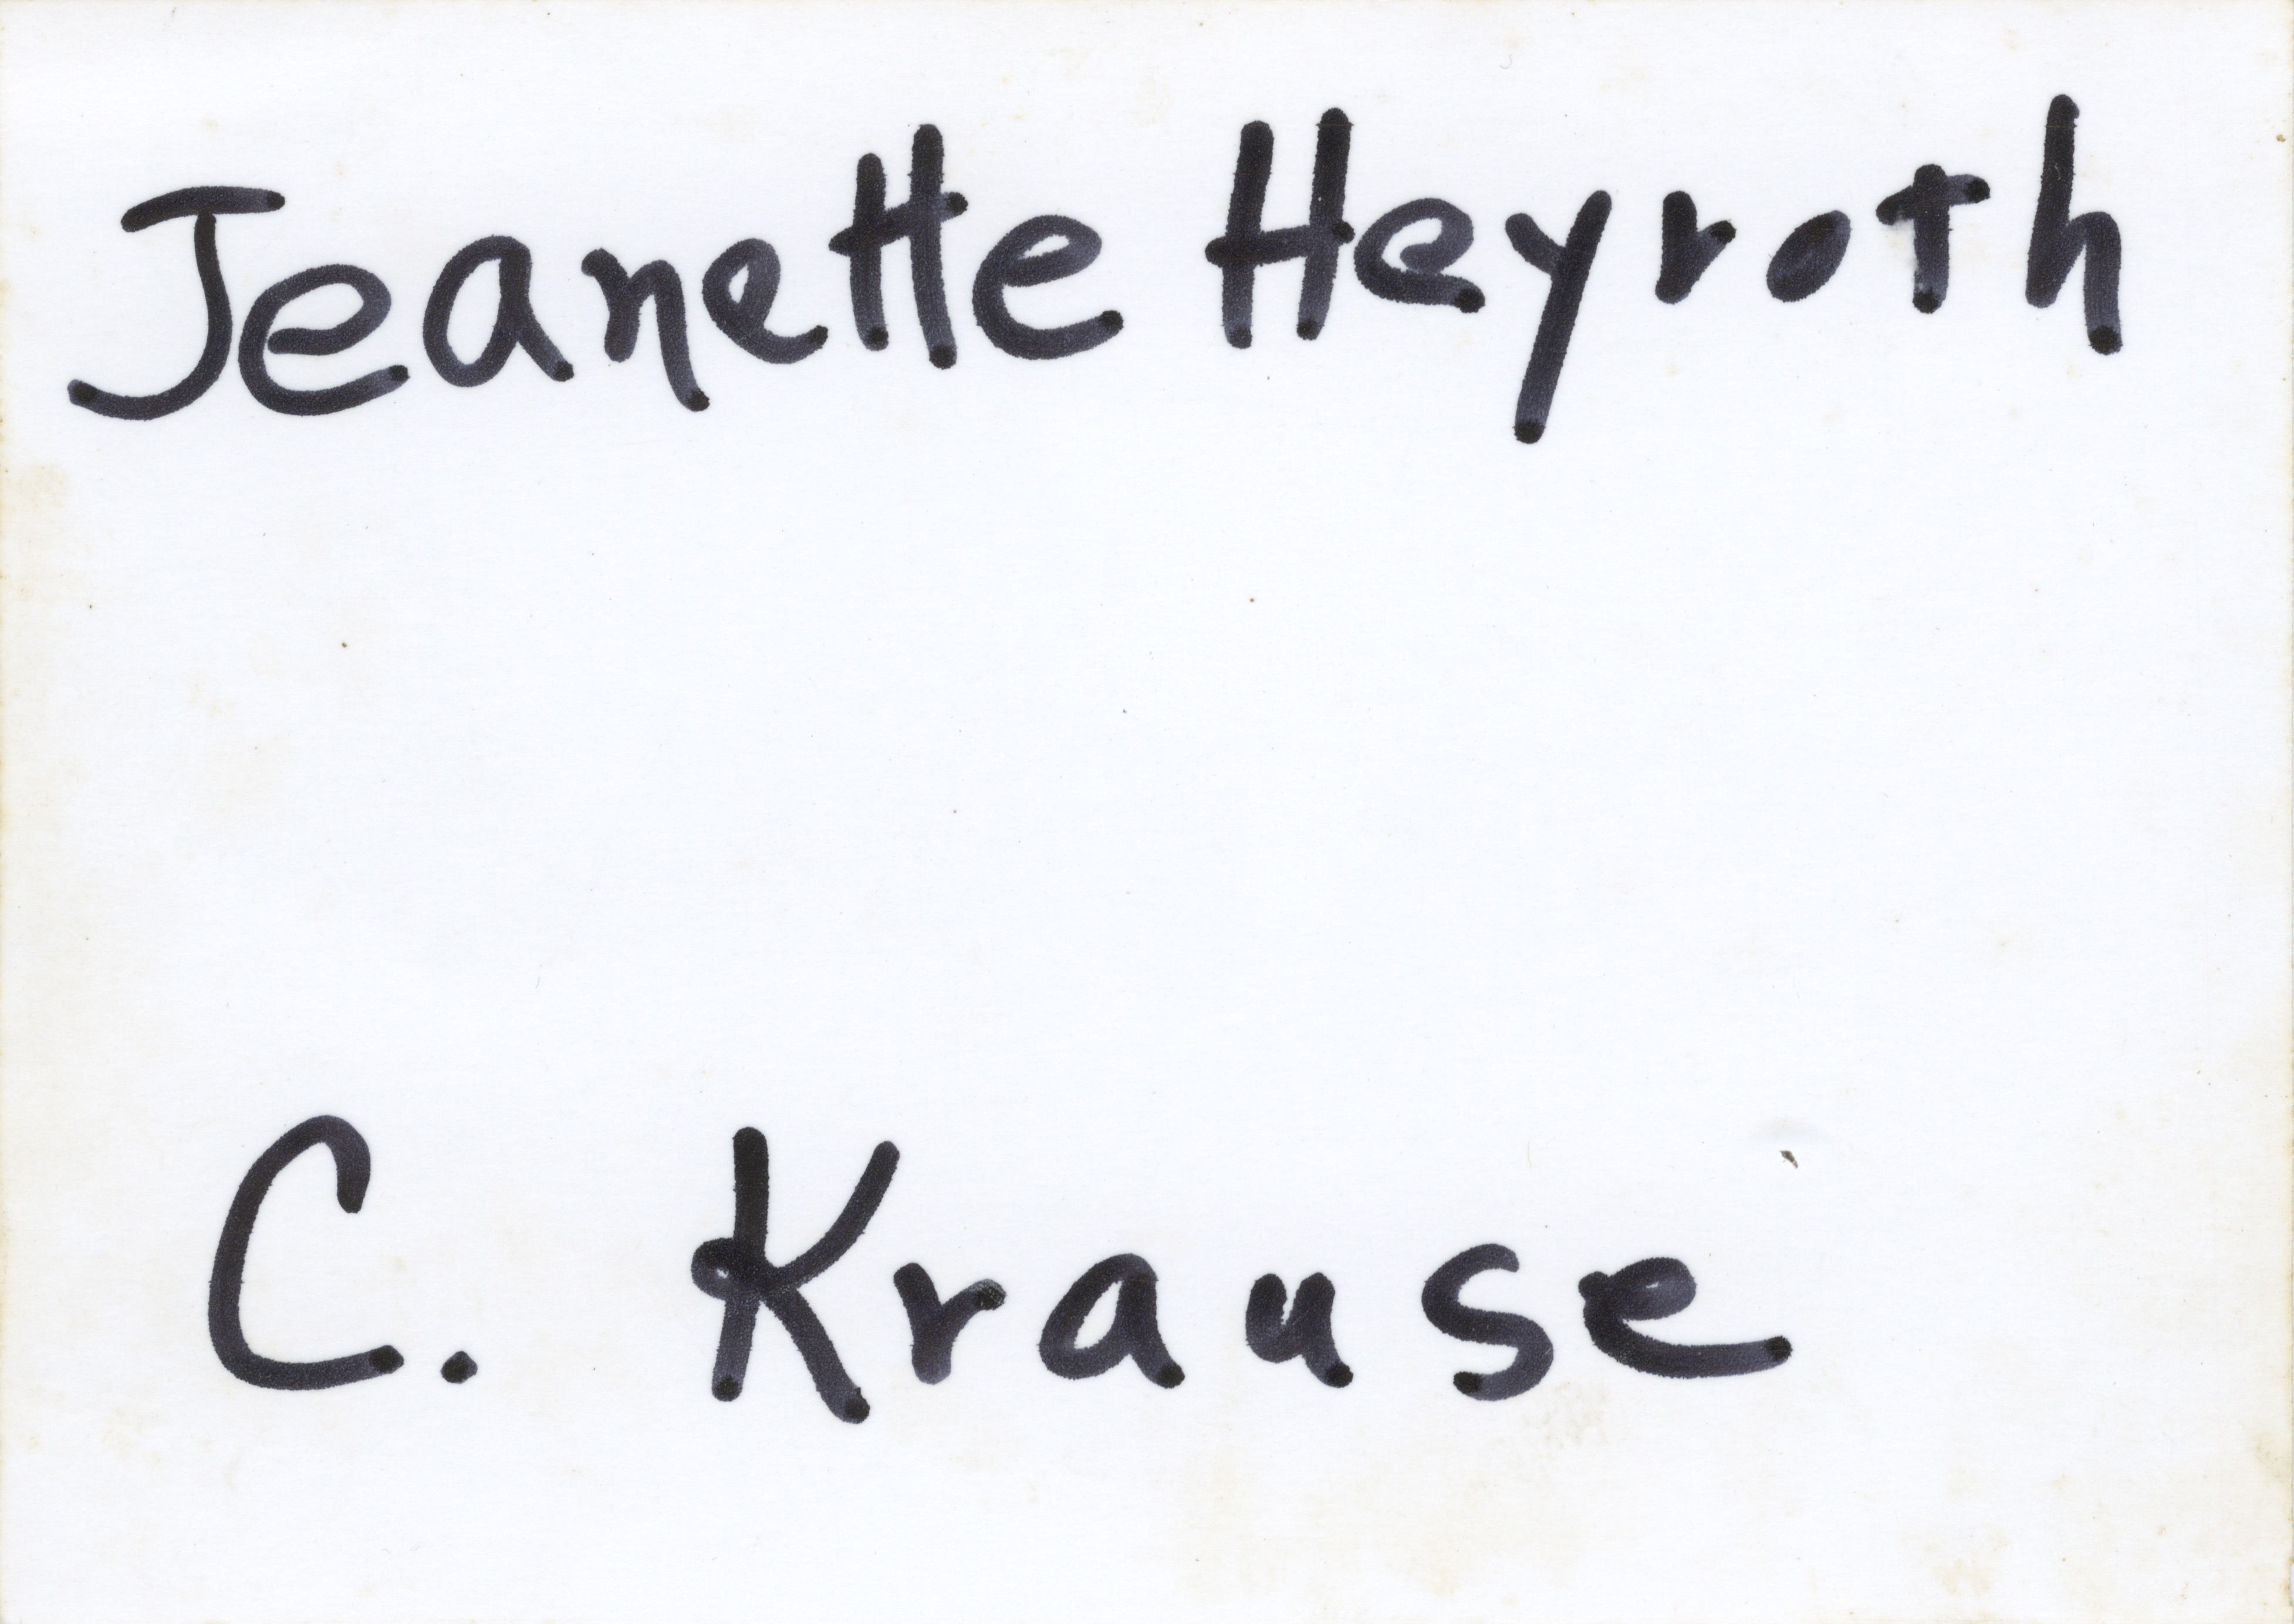 Jeanette Heyroth
C. Krause